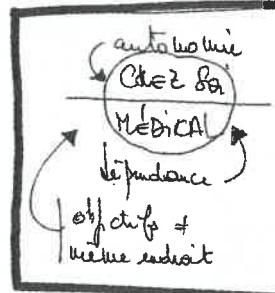 autonomie
CHEZ SOI
MÉDICAL
dépendance
objectifs ≠
même endroit